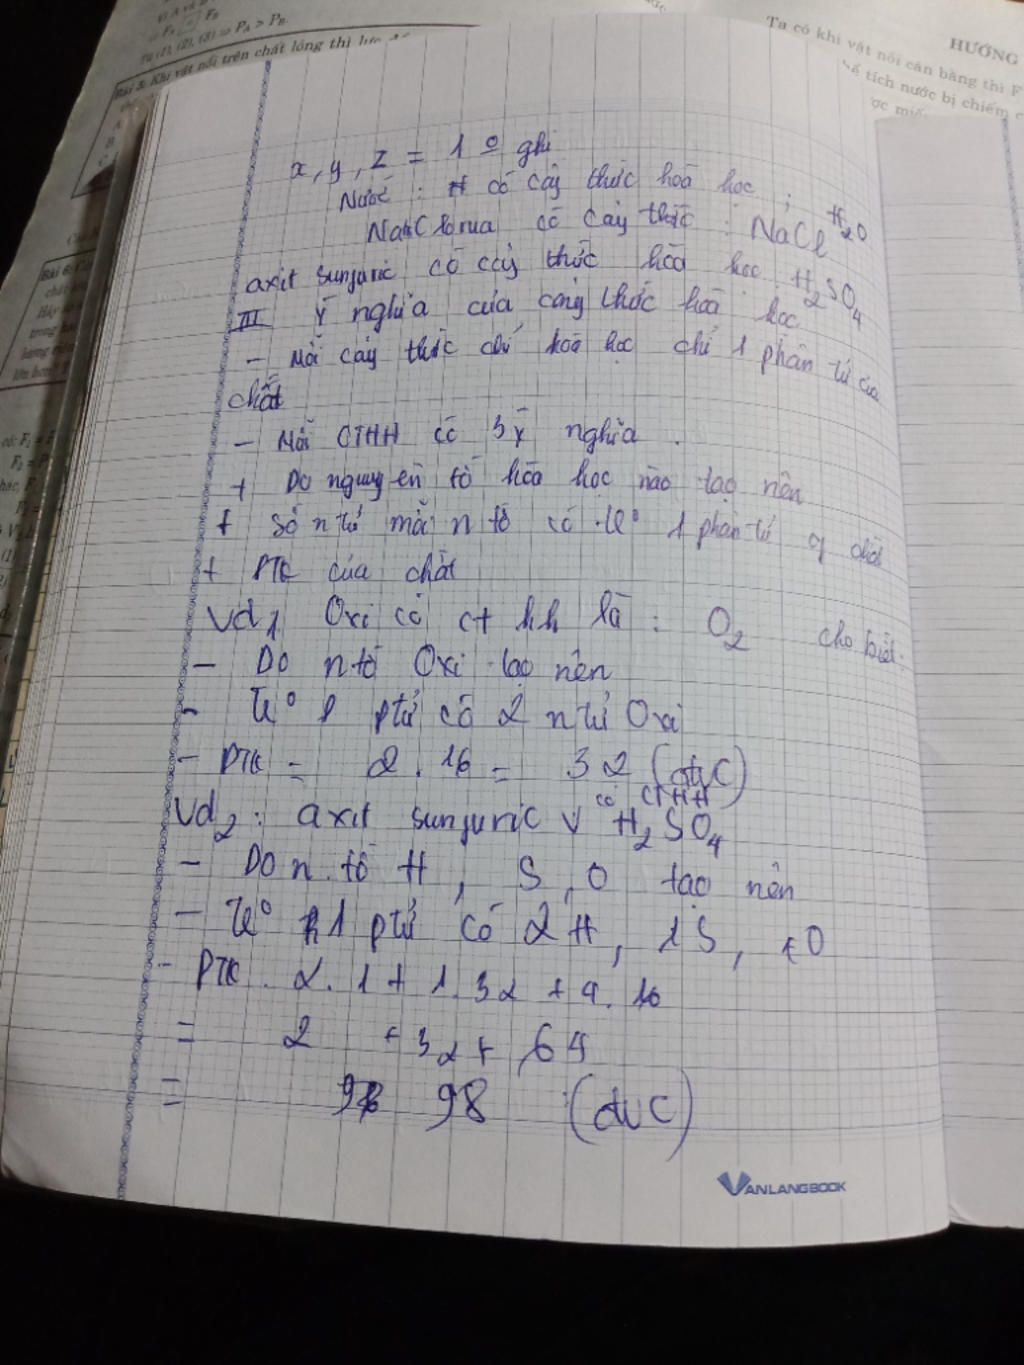 ⇒ P_A > P_B.
Bài 5: Khi vật nổi trên chất lỏng thì lực
HƯỚNG
Ta có khi vật nổi cân bằng thì F
tích nước bị chiếm c
x, y, z = 1 o ghi
Nước : có cây thức hoá học : H₂O
Natri Clorua có cây thức : NaCl
axit sunfuric có cây thức hóa học H₂SO₄
III Ý nghĩa của công thức hoá học
- Mỗi cây thức hoá học chỉ 1 phân tử của
chất
- Mỗi CTHH có 3 ý nghĩa.
+ Do nguyên tố hóa học nào tạo nên
+ Số n tử mỗi n tố có tr° 1 phân tử chất
+ PTK của chất
Vd1 Oxi có ct hh là : O₂ cho biết.
- Do n tố Oxi tạo nên
- Tr° 1 ptử có 2 n tử Oxi
- PTK = 2 . 16 = 32 (đvC)
Vd2 : axit sunfuric có CTHH H₂SO₄
- Do n. tố H, S, O tạo nên
- Tr° 1 ptử có 2H, 1S, 4O
- PTK. 2. 1 + 1. 32 + 4. 16
= 2 + 32 + 64
= 98 (đvC)
VANLANGBOOK